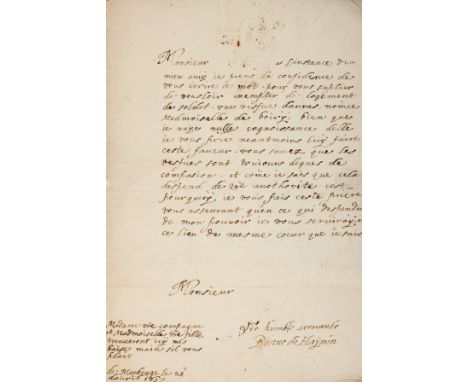 Monsieur a Linstance dun
mien amis ie prens la confidence de
vous écrire ce mot pour vous suplier
de vouloir exempter de logement
de soldat une vefue darras nomée
Madmoiselle de boiry, bien que
ie naye nulle cognoissance delle
ie vous prie neantmoins luy faire
ceste faueur vous sauez que les
vesfues sont tousiours dignes de
compasion et come ie sais que cela
despend de vre aucthorité cest
pourquoy ie vous fais ceste priere
vous asseurant quen ce qui despendra
de mon pouuoir ie vous seruiray en
ce lieu de mesme cœur que ie suis
Monsieur
Madame vre compagne
et Madmoiselle vre fille
treuueront icy mes
baise mains sil vous
plait
vre humble seruante
de Maubeuge le 28
dauril